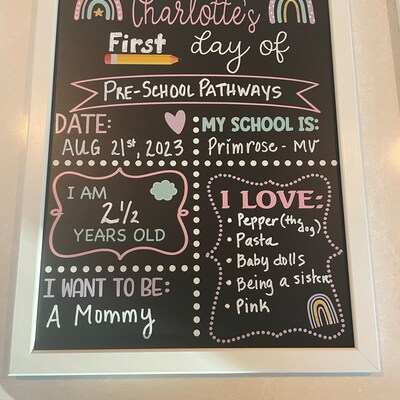 Charlotte's
First day of
PRE-SCHOOL PATHWAYS
DATE:
AUG 21st, 2023
MY SCHOOL IS:
Primrose - MV
I AM
2½
YEARS OLD
I LOVE:
• Pepper (the dog)
• Pasta
• Baby dolls
• Being a sister
• Pink
I WANT TO BE:
A Mommy